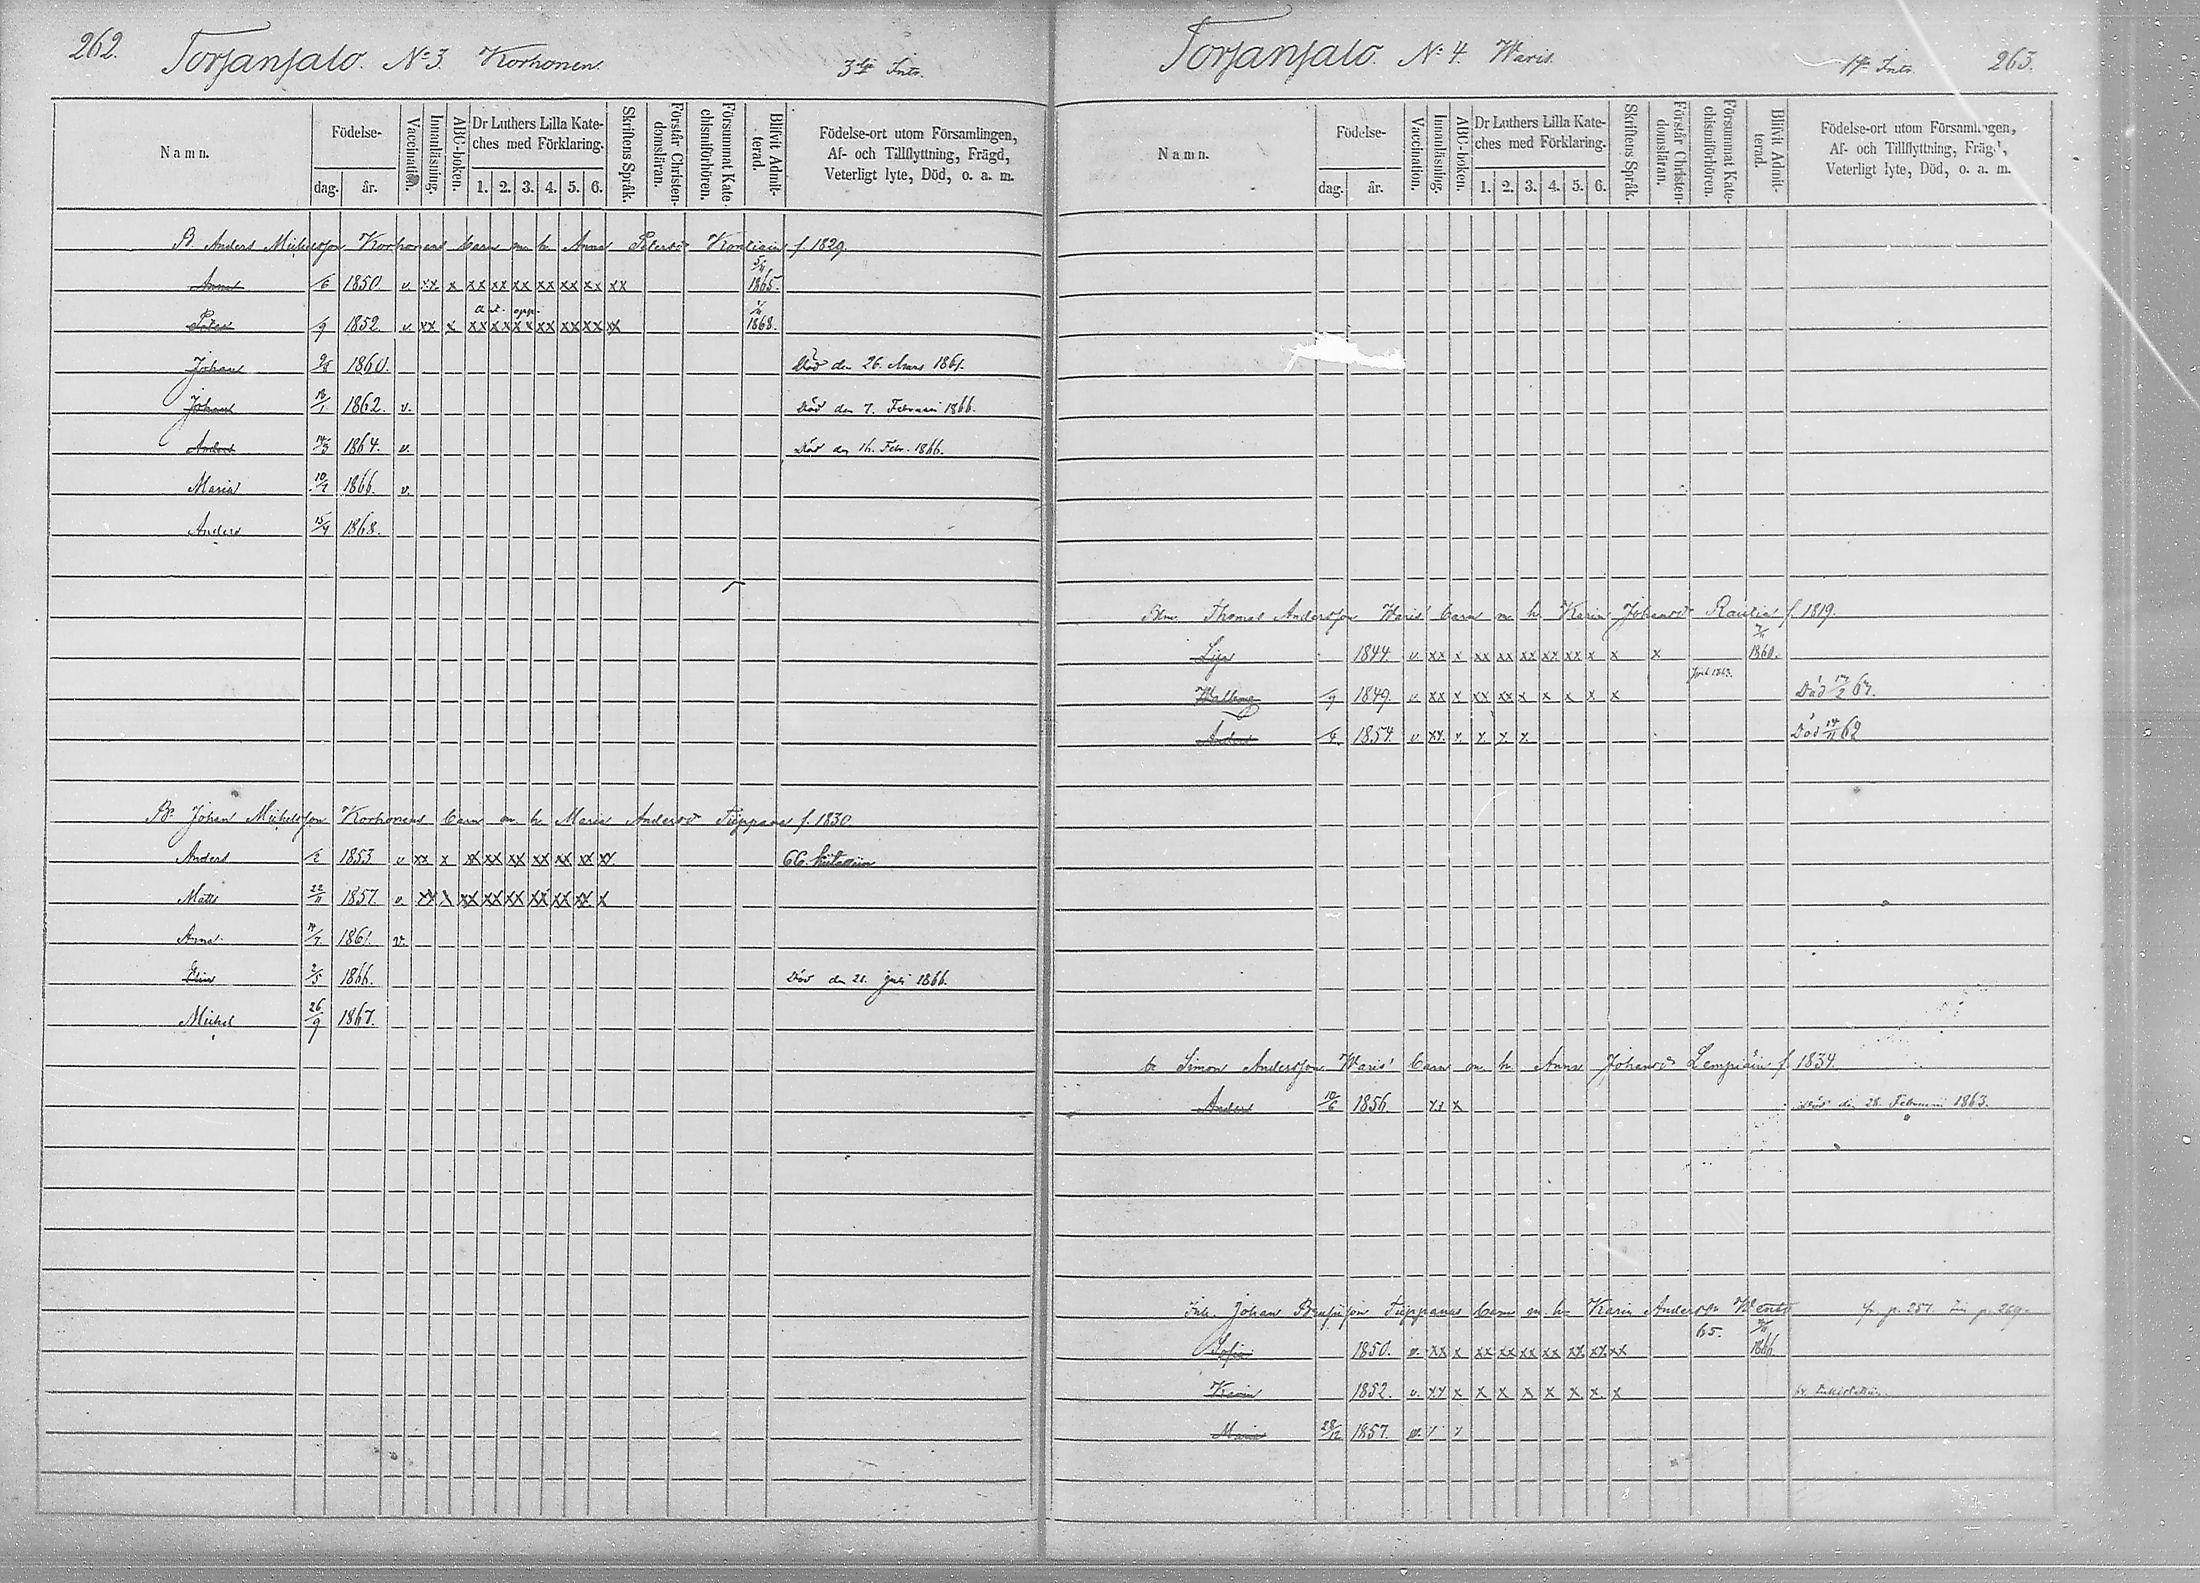 262. Torsansalo. No 3. Korhonen. 3dje Intr.
Namn. Födelse- dag. år. Vaccination. Innanläsning. ABC-boken. Dr Luthers Lilla Kateches med Förklaring. 1. 2. 3. 4. 5. 6. Skriftens Språk. Förstår Christendomsläran. Försummat Katechismiförhören. Blifvit Admitterad. Födelse-ort utom Församlingen, Af- och Tillflyttning, Frägd, Veterligt lyte, Död, o. a. m.
B. Anders Michelsson Korhonens barn m. h. Anna Petersd. f. 1829
Anna /6 1850. v. xx x xx xx xx xx xx xx xx 1865.
Peter /9 1852. v xx x xx xx xx xx xx xx xx 1868.
Johan 1860. Död den 26. Mars 1861.
Johan 18/1 1862. v. Död den 7. Februari 1866.
Anders 14/3 1864. v. Död den 16. Febr. 1866.
Maria 1866. v.
Anders 15/4 1868.
Br. Johan Michelsson Korhonens barn m. h. Maria Andersd. Tuppana f. 1830
Anders /2 1853 v xx x xx xx xx xx xx xx xx
Matts 22/11 1857. v. xx x xx xx xx xx xx xx x
Anna 1861. v.
Elin 2/5 1866. Död den 21. Juli 1866.
Michel 26/9 1867.
Torsansalo. No 4. Waris. 1sta Intr. 263.
Namn. Födelse- dag. år. Vaccination. Innanläsning. ABC-boken. Dr Luthers Lilla Kateches med Förklaring. 1. 2. 3. 4. 5. 6. Skriftens Språk. Förstår Christendomsläran. Försummat Katechismiförhören. Blifvit Admitterad. Födelse-ort utom Församlingen, Af- och Tillflyttning, Frägd, Veterligt lyte, Död, o. a. m.
Thomas Andersson Waris' barn m. h. Karin Johansd. Rautia f. 1819.
Lisa 1844. v. xx x xx xx xx xx xx x x x 1860.
Walborg /9 1849. v xx x xx xx x x x x x Död 17/2 67.
Anders /4 1854 v. xx. x. x x x Död 14/11 62
br Simon Andersson Waris' barn m. h. Anna Johansd. Lempiäin f. 1834.
Anders 10/6 1856. xx x Död den 28. Februari 1863.
Inh. Johan Tuppanas barn m. h. Karin Andersdr fr. p. 257. p. 269.
65.
Sofia 1850. v. xx x xx xx xx xx xx xx xx 1866.
Karin 1852. v. xx x x x x x x x. x
Maria 28/12 1857. v. / /